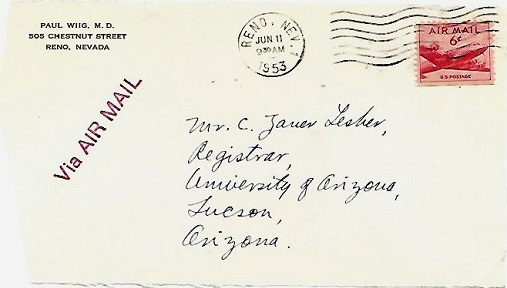 PAUL WIIG, M. D.
505 CHESTNUT STREET
RENO, NEVADA
RENO, NEV.
JUN 11
9 30 AM
1953
AIR MAIL
6¢
U.S. POSTAGE
Via AIR MAIL
Mr. C. Zaner Lesher,
Registrar,
University of Arizona,
Tucson,
Arizona.